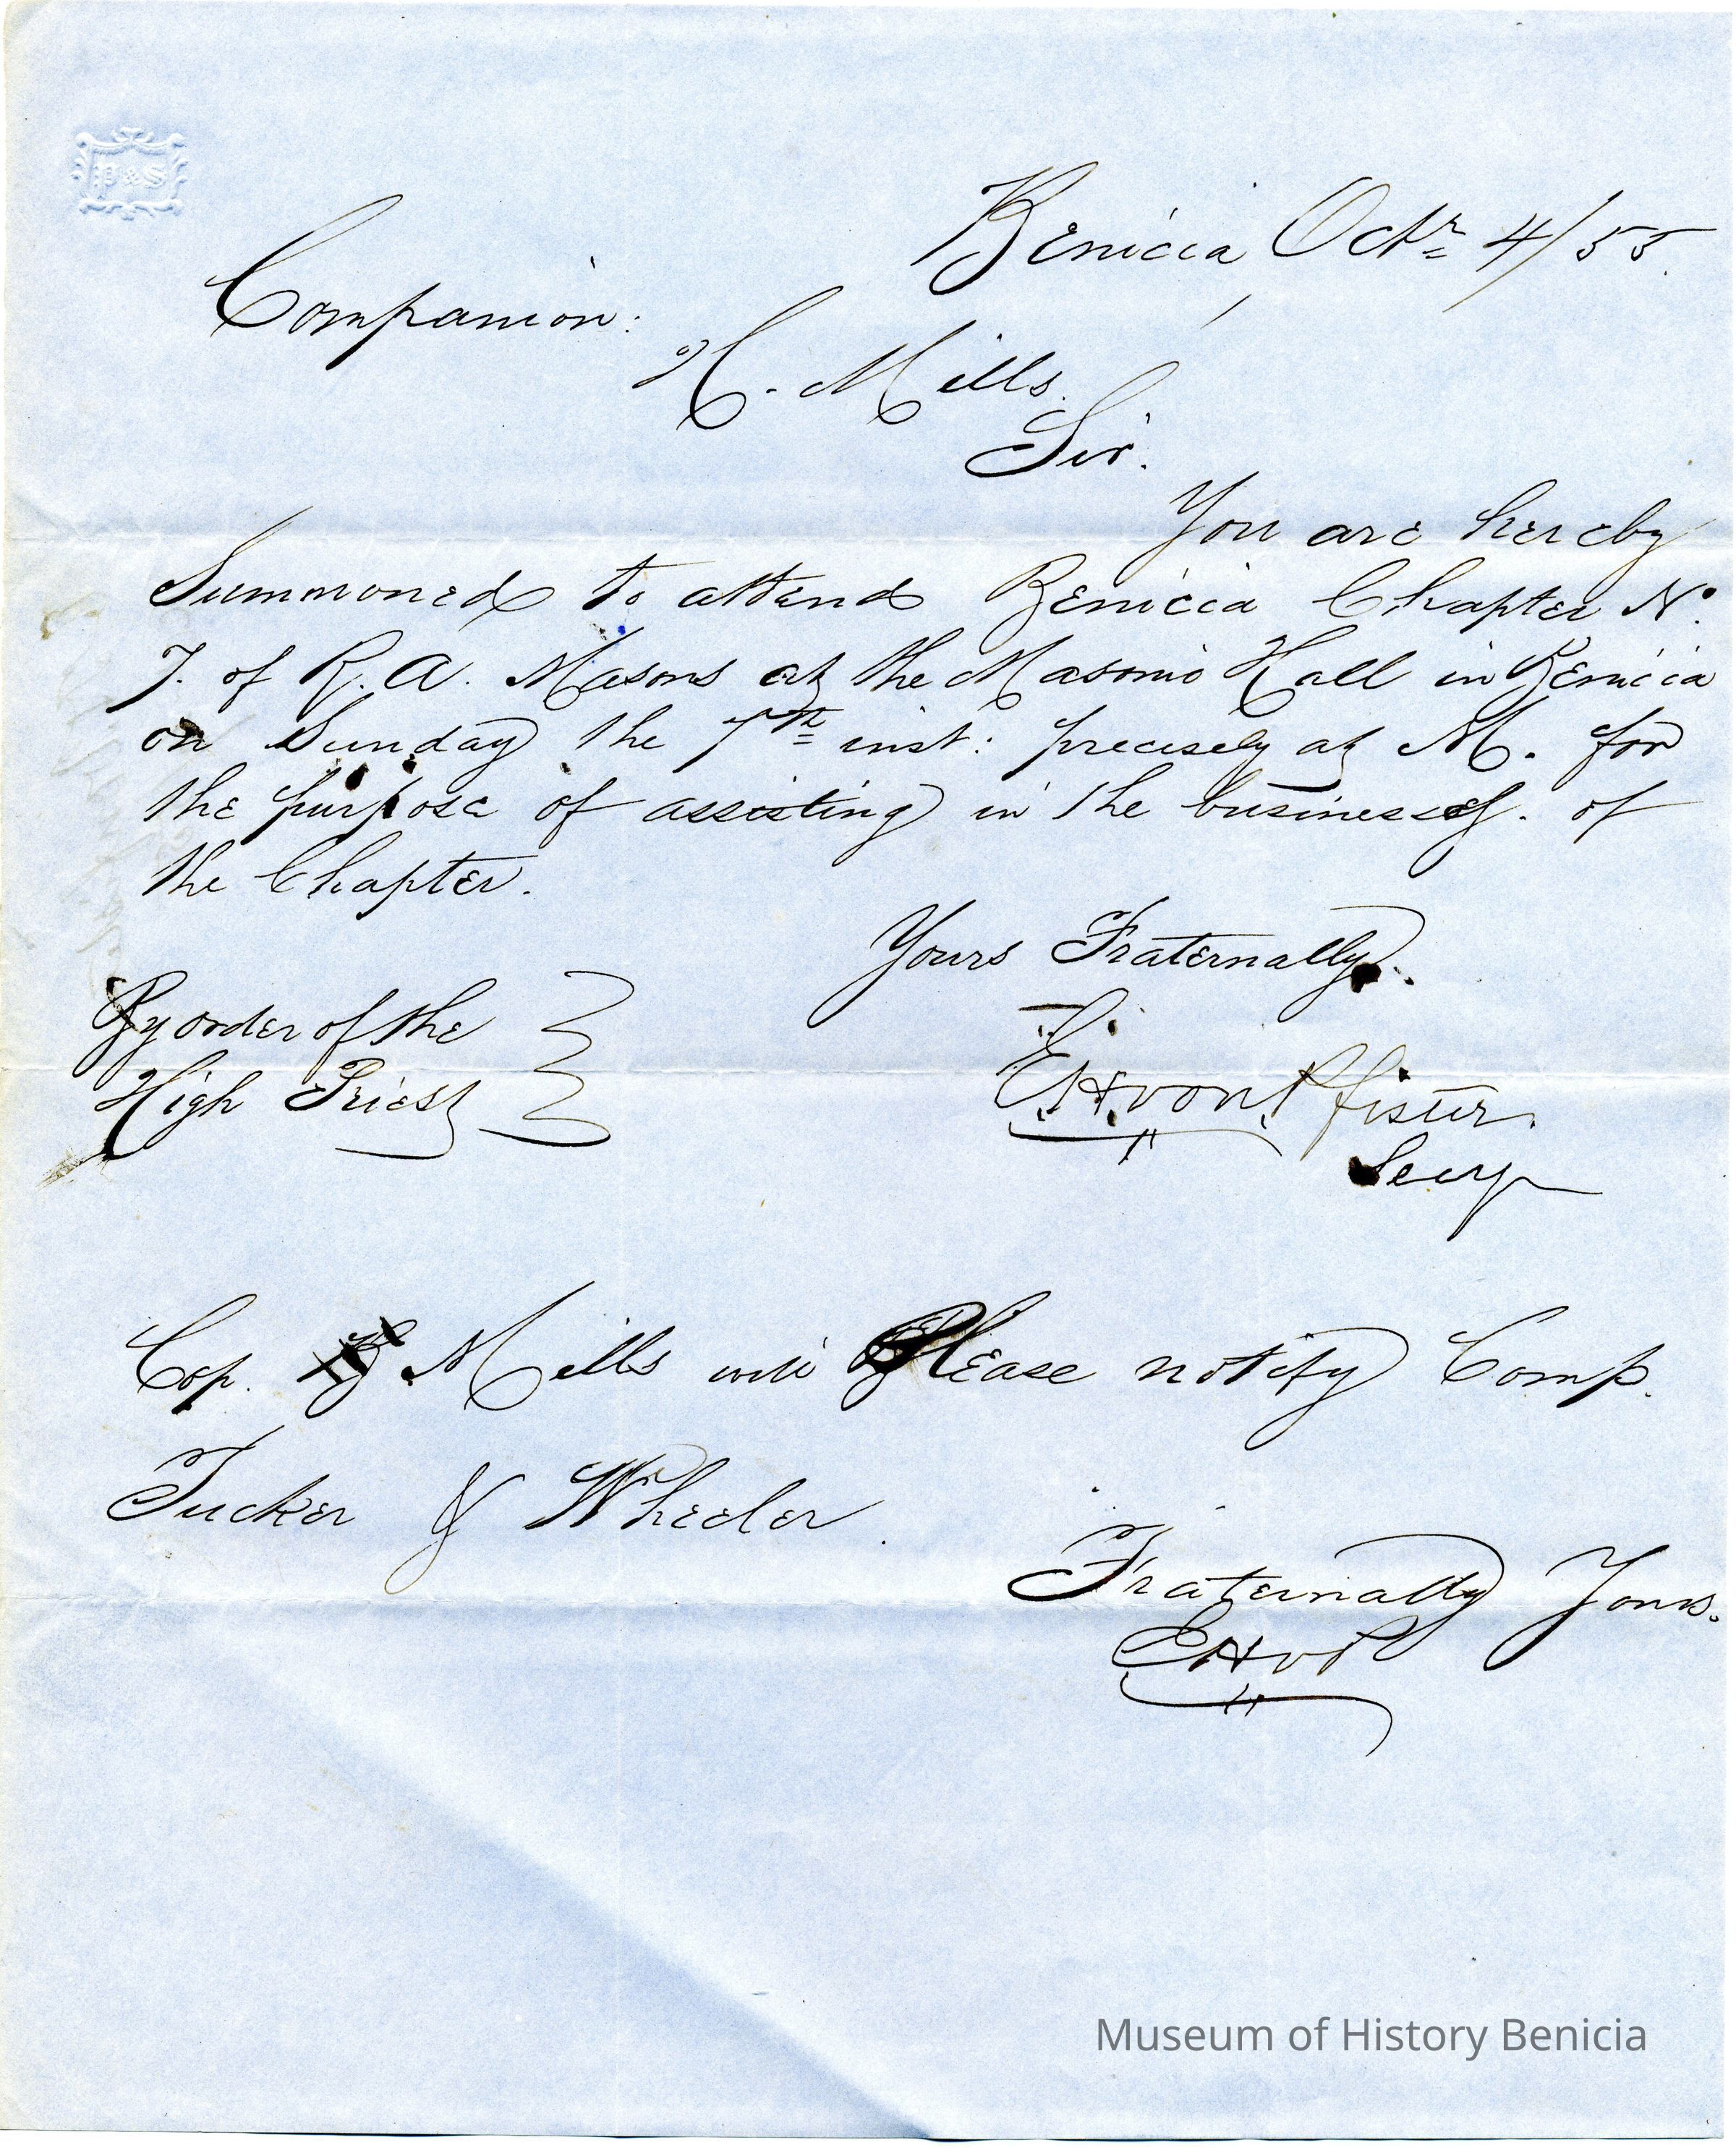 P & S
Benicia Octr 4/55.
Companion:
H. Mills.
Sir.
You are hereby
Summoned to attend Benicia Chapter No.
7. of R. A. Masons at the Masonic Hall in Benicia
on Sunday the 7th inst: precisely at M. for
the purpose of assisting in the business of
the Chapter.
Yours Fraternally.
By order of the
High Priest
E. H. von Pfister.
Secy
Cop. Mills will Please notify Comp.
Tucker & Wheeler.
Fraternally Yours.
EHvP
Museum of History Benicia